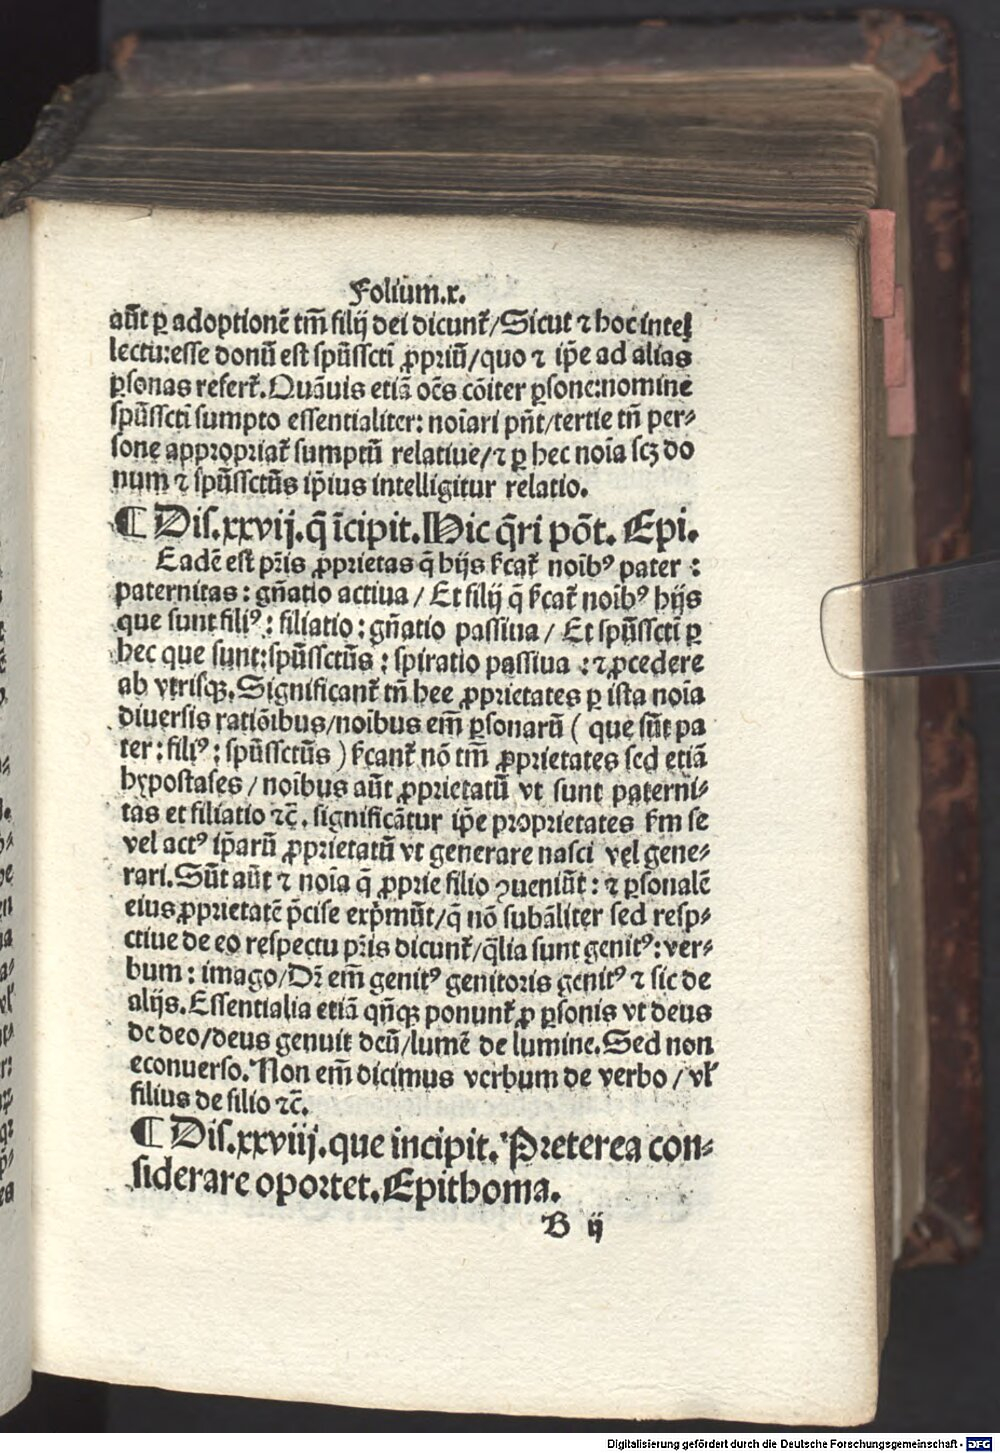 Folium.x.
aūt ꝑ adoptionē tm̄ filij dei dicunt᷑/Sicut ⁊ hoc intel
lectu:esse donū est spūssctī ꝓpriū/quo ⁊ ip̄e ad alias
ꝑsonas refert᷑.Quāuis etiā oēs cōiter ꝑsone:nomine
spūssctī sumpto essentialiter: noīari pn̄t/tertie tn̄ per⸗
sone appropriat᷑ sumptū relatiue/⁊ ꝑ hec noīa scꝫ do
num ⁊ spūssctūs ip̄ius intelligitur relatio.
¶ Dis.xxvij.q̄ īcipit.Hic q̄ri pōt. Epi.
Eadē est pr̄is ꝓprietas q̄ hijs ſ̄cat᷑ noībꝰ pater :
paternitas : gn̄atio actiua / Et filij q̄ ſ̄cat᷑ noībꝰ hijs
que sunt filiꝰ : filiatio : gn̄atio passiua / Et spūssctī ꝑ
hec que sunt:spūssctūs : spiratio passiua : ⁊ ꝓcedere
ab vtrisqꝫ.Significant᷑ tn̄ hee ꝓprietates ꝑ ista noīa
diuersis ratiōibus/noībus em̄ ꝑsonarū ( que sūt pa
ter : filiꝰ : spūssctūs ) ſ̄cant᷑ nō tm̄ ꝓprietates sed etiā
hypostases / noībus aūt ꝓprietatū vt sunt paterni⸗
tas et filiatio ⁊c̄. significātur ip̄e proprietates ſm se
vel actꝰ ip̄arū ꝓprietatū vt generare nasci vel gene⸗
rari.Sūt aūt ⁊ noīa q̄ ꝓprie filio ꝯueniūt : ⁊ ꝑsonalē
eius ꝓprietatē p̄cise exp̄mūt/q̄ nō subāliter sed resp⸗
ctiue de eo respectu pr̄is dicunt᷑/q̄lia sunt genitꝰ:ver⸗
bum : imago/Dr̄ em̄ genitꝰ genitoris genitꝰ ⁊ sic de
alijs.Essentialia etiā qn̄qꝫ ponunt᷑ ꝓ ꝑsonis vt deus
de deo/deus genuit deū/lumē de lumine.Sed non
econuerso.Non em̄ dicimus verbum de verbo / vl̄
filius de filio ⁊c̄.
¶ Dis.xxviij.que incipit.Preterea con⸗
siderare oportet.Epithoma.
B ij
Digitalisierung gefördert durch die Deutsche Forschungsgemeinschaft - DFG